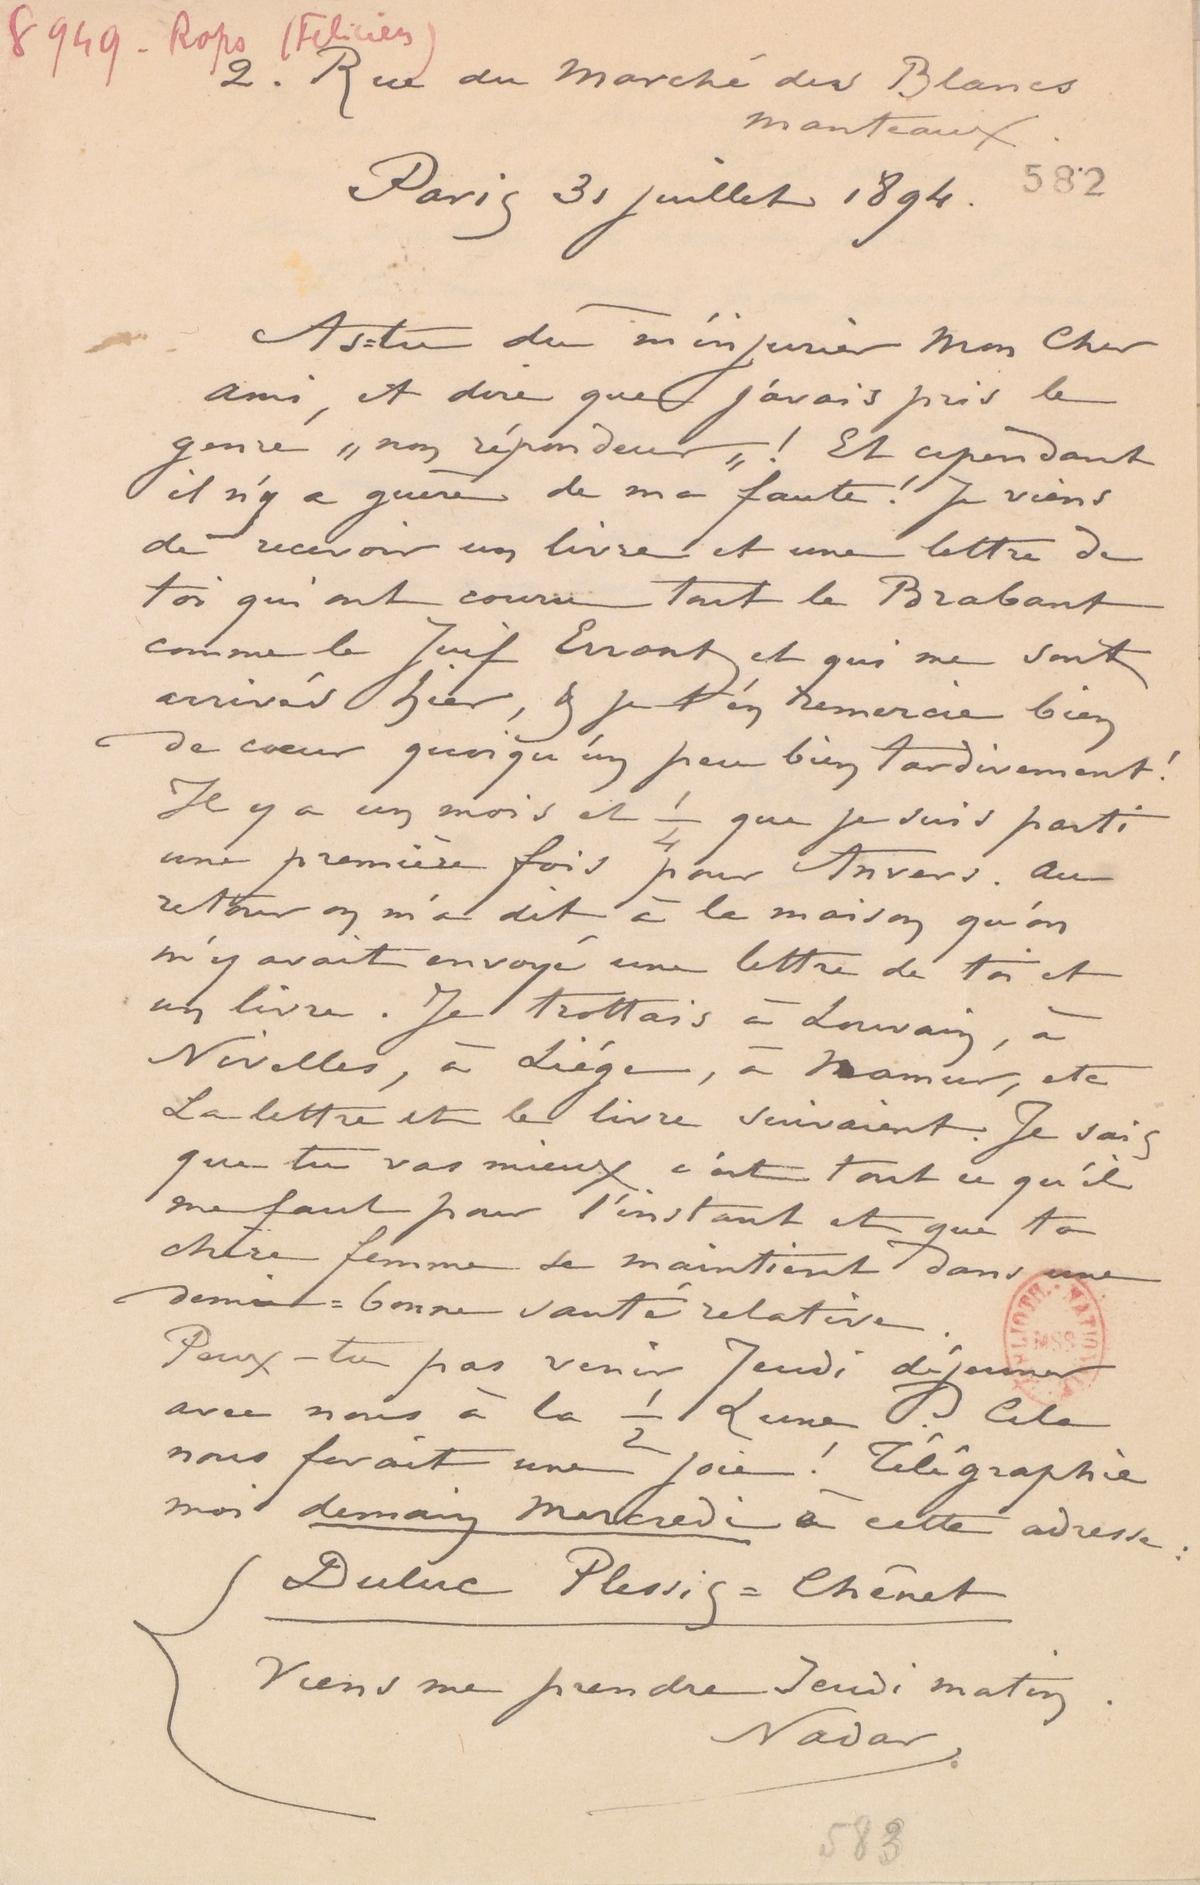 8949 - Rops (Félicien)
2. Rue du Marché des Blancs
Manteaux.
582
Paris 31 juillet 1894.
As=tu dû m'injurier Mon Cher
ami, et dire que j'avais pris le
genre „non répondeur„! Et cependant
il n'y a guère de ma faute! Je viens
de recevoir un livre et une lettre de
toi qui ont couru tout le Brabant
comme le Juif Errant, et qui me sont
arrivés hier, & je t'en remercie bien
de cœur quoiqu'un peu bien tardivement!
Il y a un mois et 1/4 que je suis parti
une première fois pour Anvers. Au
retour on m'a dit à la maison qu'on
m'y avait envoyé une lettre de toi et
un livre. Je trottais à Louvain, à
Nivelles, à Liége, à Namur, etc
La lettre et le livre suivaient. Je sais
que tu vas mieux c'est tout ce qu'il
me faut pour l'instant et que ta
chère femme se maintient dans une
demie=bonne santé relative.
Peux-tu pas venir Jeudi déjeuner
avec nous à la 1/2 Lune? Cela
nous ferait une joie! Télégraphie
moi demain Mercredi à cette adresse:
Duluc Plessis=Chênet
Viens me prendre Jeudi matin.
Nadar.
BIBLIOTH. NATIONALE
MSS
583